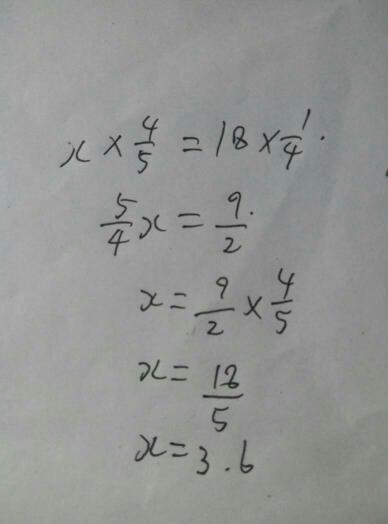 x × 4/5 = 18 × 1/4.
5/4 x = 9/2
x = 9/2 × 4/5
x = 18/5
x = 3.6